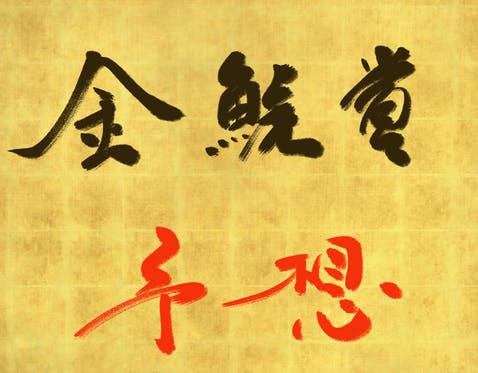 金鯱賞
予想